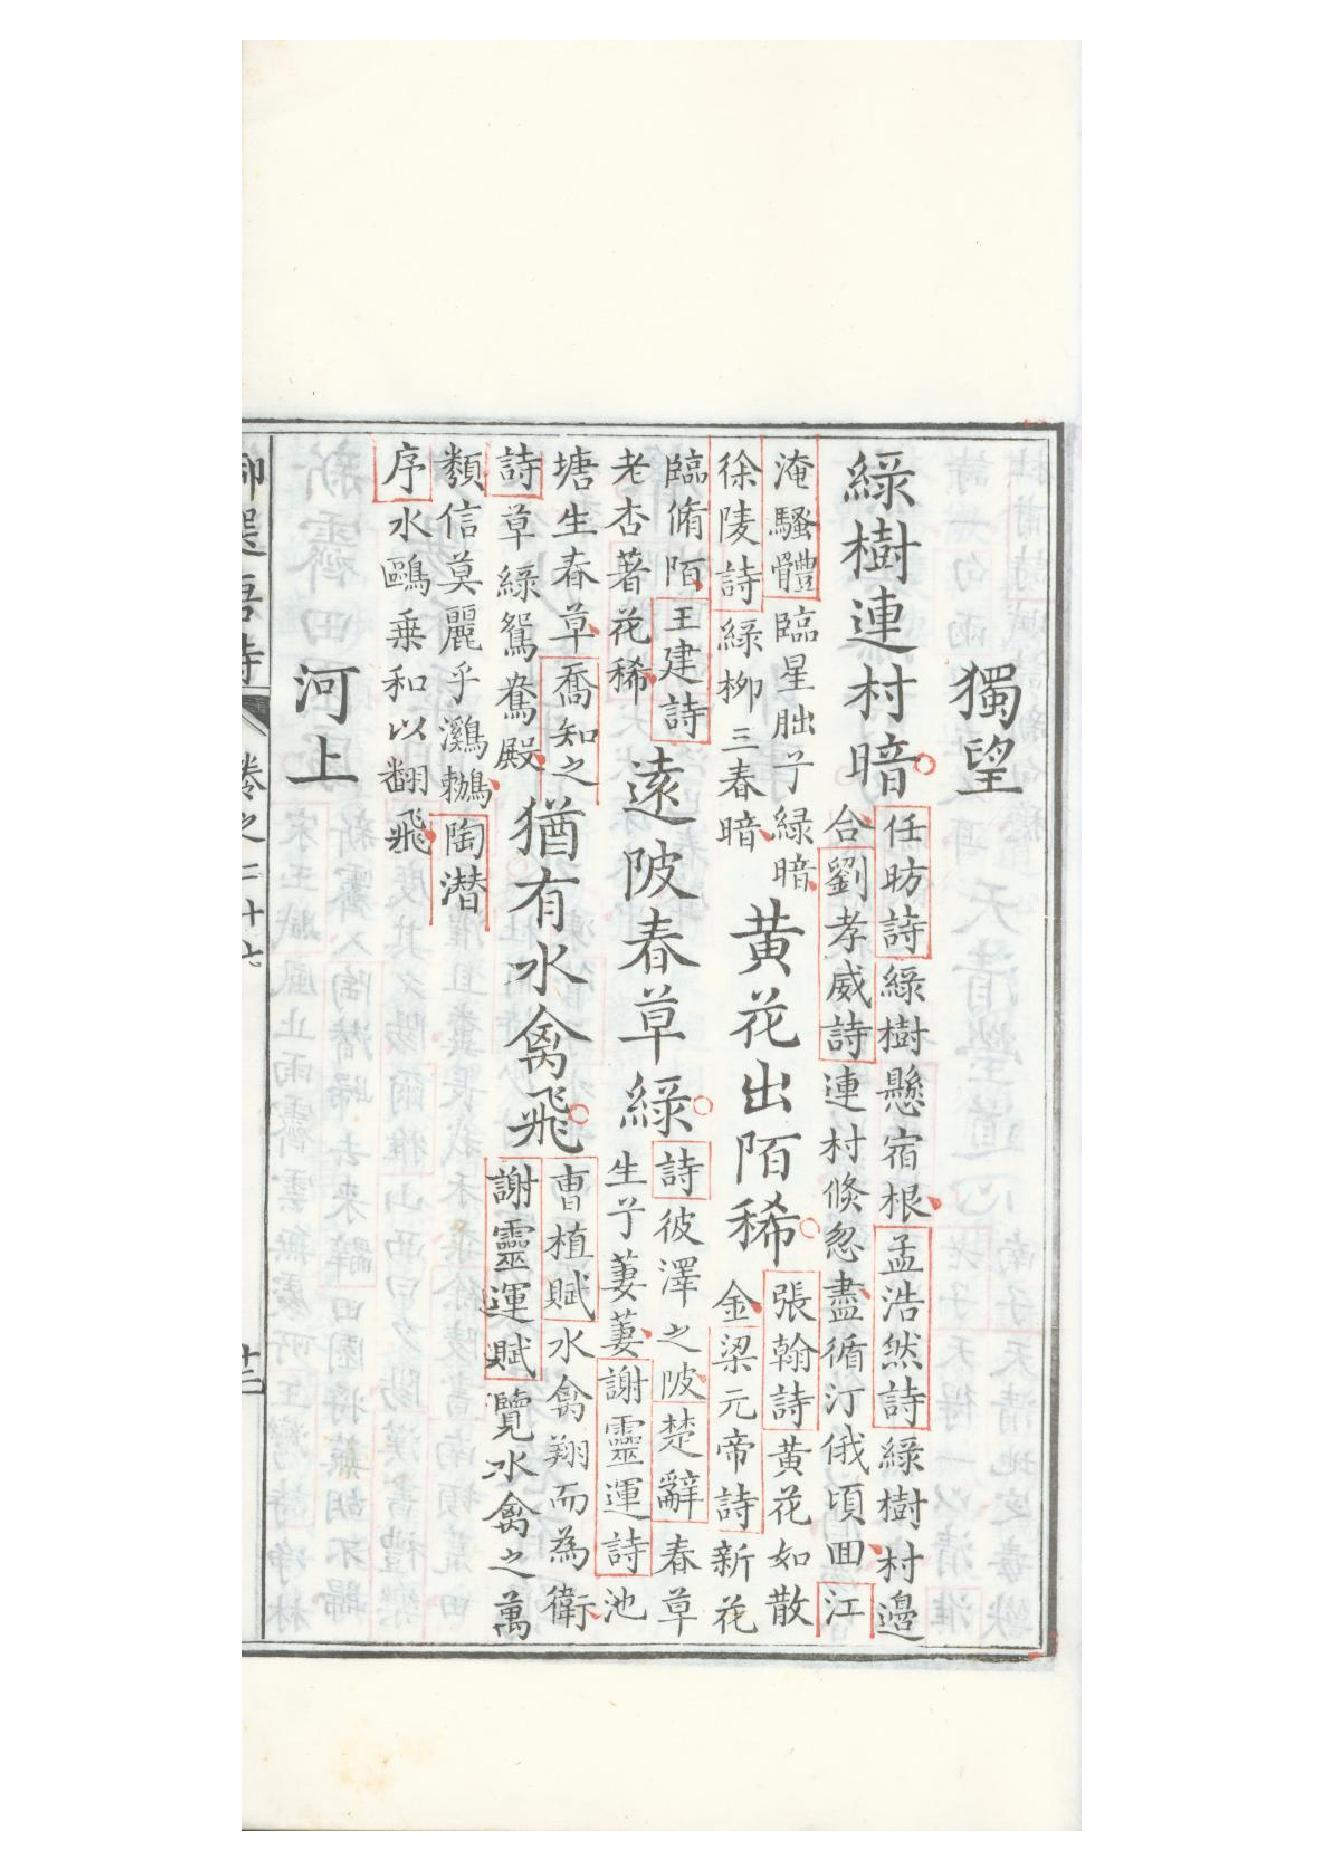 獨望
綠樹連村暗
任昉詩綠樹懸宿根孟浩然詩綠樹村邊
合劉孝威詩連村倐忽盡循汀俄頃回江
淹騷體臨星朏兮綠暗
徐陵詩綠柳三春暗
黃花出陌稀
張翰詩黃花如散
金梁元帝詩新花
臨脩陌王建詩
老杏著花稀
遠陂春草綠
詩彼澤之陂楚辭春草
生兮萋萋謝靈運詩池
塘生春草喬知之
詩草綠鴛鴦殿
猶有水禽飛
曹植賦水禽翔而為衛
謝靈運賦覽水禽之萬
類信莫麗乎鸂鶒陶潛
序水鷗乗和以翻飛
河上
御選唐詩 卷之二十七 十二